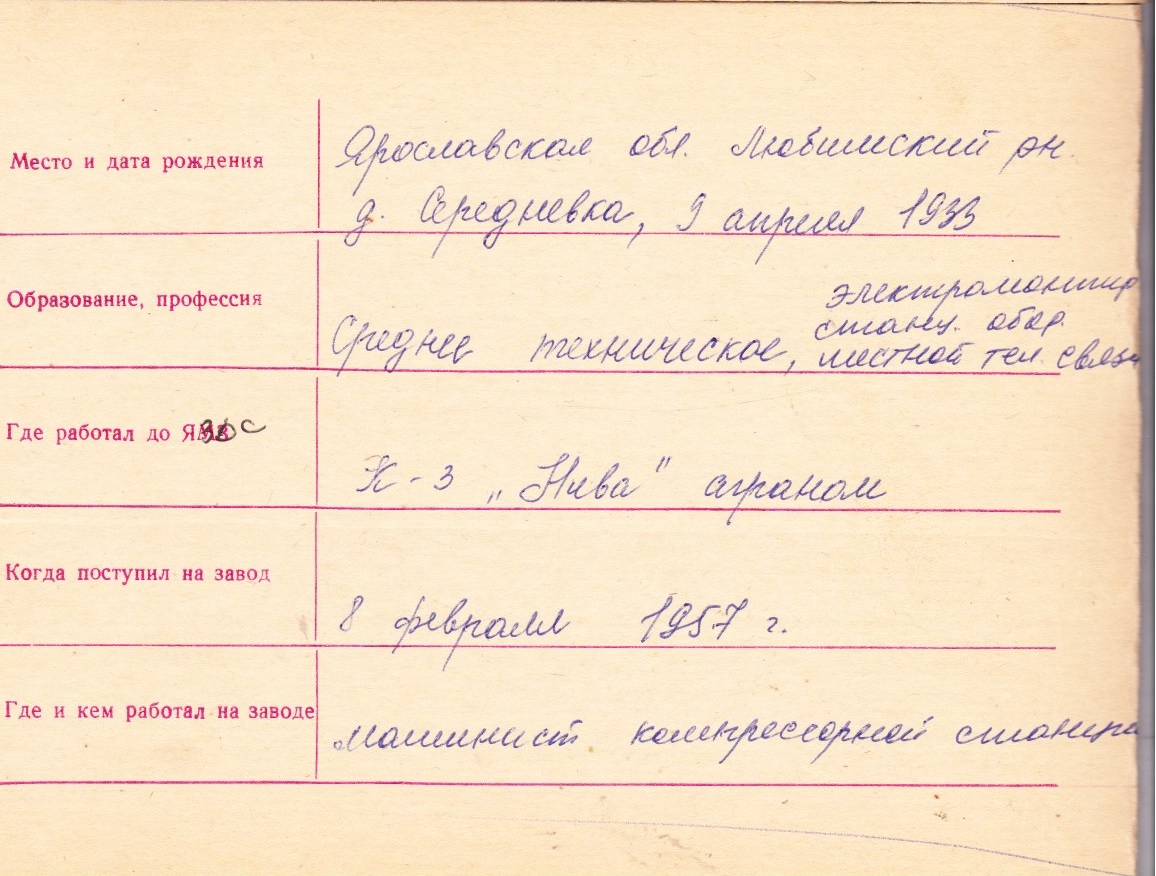 Место и дата рождения
Ярославская обл. Любимский рн.
д. Середневка, 9 апреля 1933
Образование, профессия
Среднее техническое, электромонтир
станц. обор.
местной тел. связи
Где работал до
К-з „Нива" аграном
Когда поступил на завод
8 февраля 1957 г.
Где и кем работал на заводе
машинист компрессорной станции